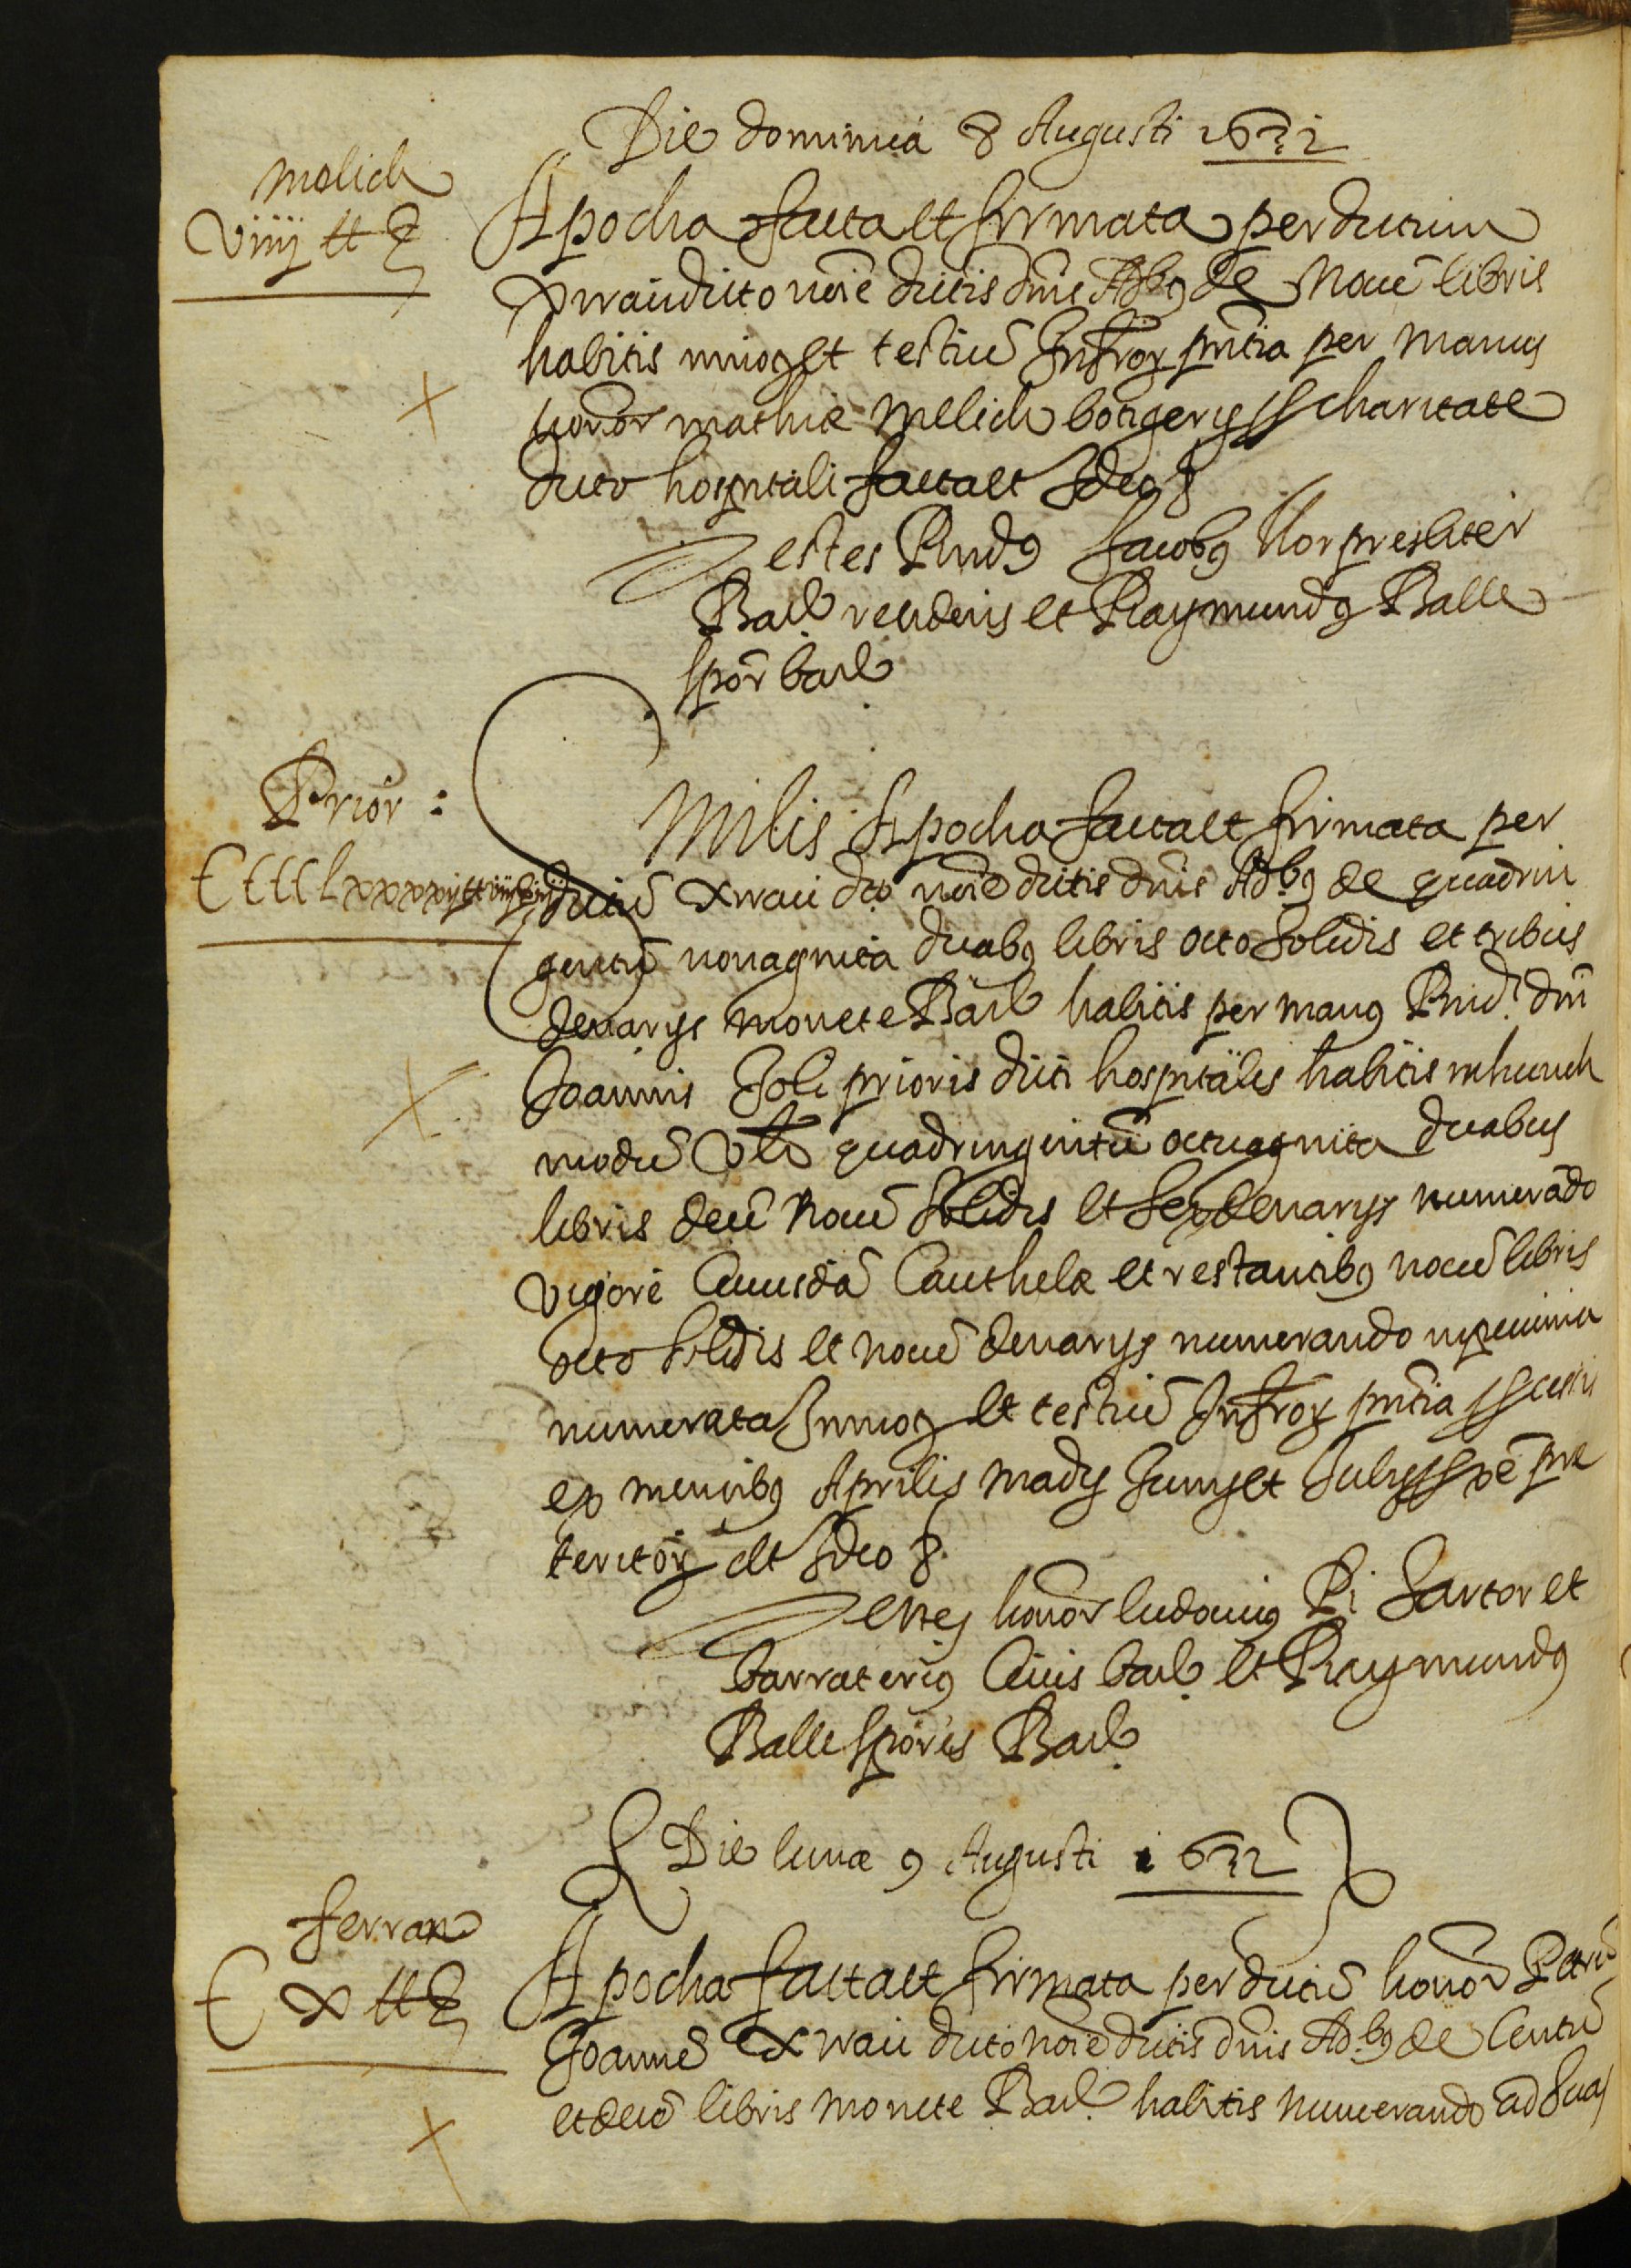 Die dominica 8 Augusti 1632
Molich
Viiij ll ß
Apocha facta et firmata per dictum
Xirau dicto noīe dictis dnis Adbꝰ de Novē libris
habitis in meoꝝ et testiū Infroꝝ pñtia per manus
honor mathiæ Melich botigerij ex charitate
dicto hospitali facta et Ideo &
Testes Rndꝰ Jacobꝰ Flor presbiter
Barᵉ residens et Raymundꝰ Balle
scpōr barᵉ
Prior :
CCCCLxxxxij ll viij ß iij
Similis Apocha facta et firmata per
dictū Xirau dco noīe dictis dnis Adbꝰ de quadrin
gentū nonaginta duabꝰ libris octo solidis et tribus
denarijs monete Barᵉ habitis per manꝰ Rnd. dni
Joannis Soli prioris dicti hospitalis habitis in hunch
modū Vlt quadringintū octuaginta duabus
libris decē novē solidis et sex denarijs numerādo
vigore Cuiusdā Cauthele et restantibꝰ novē libris
octo solidis et novē denarijs numerando in pecunia
numerata In meoꝝ et testiū Infroꝝ pñtia
ex mensibꝰ Aprilis Madij Junij et Julij pre
teritoꝝ et Ideo &
Testes honor ludovicꝰ Pi Sartor et
barraterius Civis barᵉ et Raymundꝰ
Balle scpōris Barᵉ
Die lune 9 Augusti i632
ferran
C x ll ß
Apocha facta et firmata per dictū honor Petrū
Joannē Xirau dicto noīe dictis dnis Adbꝰ de Centū
et decē libris monete Barᵉ habitis numerando ad suas